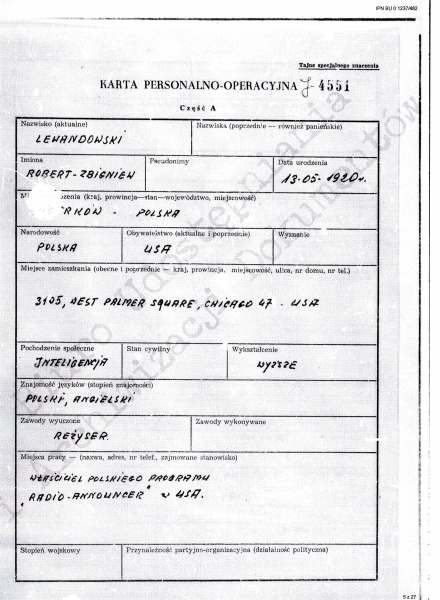 IPN BU 0 1237/482
Tajne specjalnego znaczenia
KARTA PERSONALNO-OPERACYJNA J-4551
Część A
Nazwisko (aktualne)
LEWANDOWSKI
Nazwiska (poprzednie — również panieńskie)
Imiona
ROBERT-ZBIGNIEW
Pseudonimy
Data urodzenia
13-05-1920r.
(kraj, prowincja—stan—województwo, miejscowość)
- POLSKA
Narodowość
POLSKA
Obywatelstwo (aktualne i poprzednie)
USA
Wyznanie
Miejsce zamieszkania (obecne i poprzednie — kraj, prowincja, miejscowość, ulica, nr domu, nr tel.)
3105, WEST PALMER SQUARE, CHICAGO 47 - USA
Pochodzenie społeczne
INTELIGENCJA
Stan cywilny
Wykształcenie
WYŻSZE
Znajomość języków (stopień znajomości)
POLSKI, ANGIELSKI
Zawody wyuczone
REŻYSER.
Zawody wykonywane
Miejsca pracy — (nazwa, adres, nr telef., zajmowane stanowisko)
WŁAŚCICIEL POLSKIEGO PROGRAMU
"RADIO-ANNOUNCER" w USA.
Stopień wojskowy
Przynależność partyjno-organizacyjna (działalność polityczna)
5 z 27